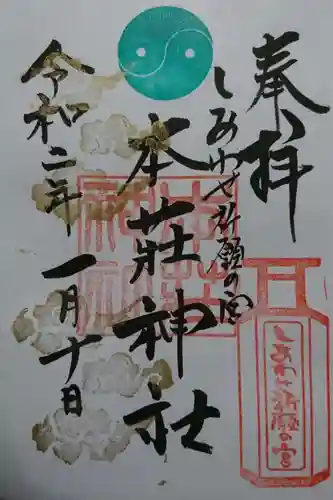 奉拝
しあわせ祈願の宮
本荘神社
令和二年一月十日
本荘神社
しあわせ祈願の宮